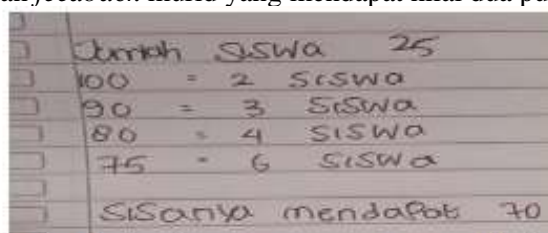 murid yang mendapat nilai dua pu
Jumlah siswa 25
100 = 2 siswa
90 = 3 siswa
80 = 4 siswa
75 = 6 siswa
Sisanya mendapat 70